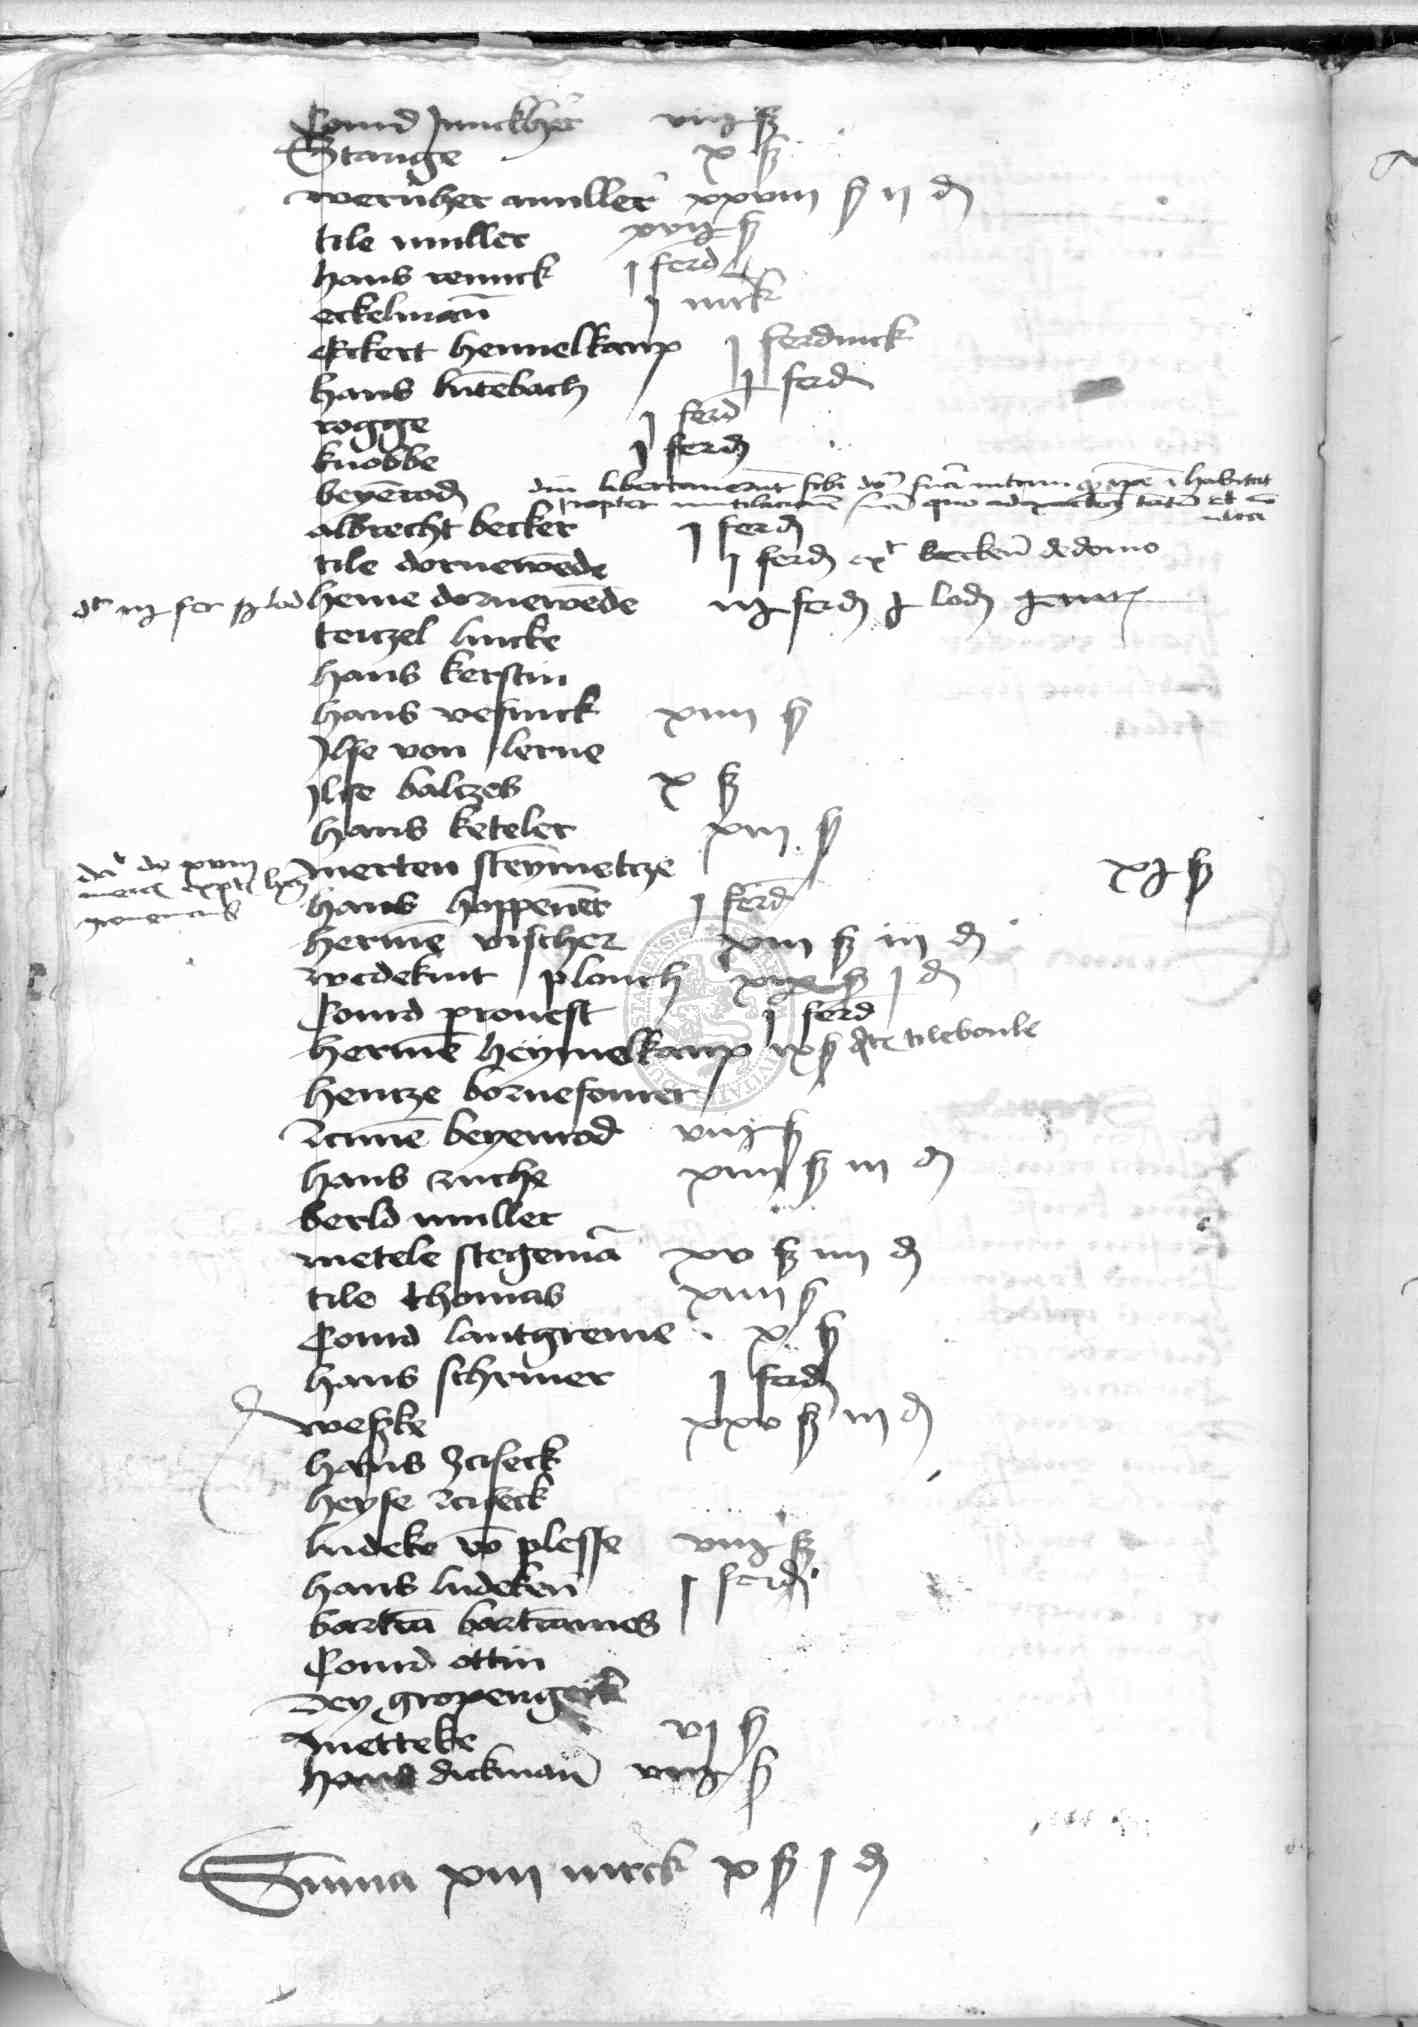 Conrd Junckher viij ß
Stange x ß
wernher muller xxviii ß ij d
tile muller xvij ß
hans reminck j ferd
eckelman j mrk
Eckert hemmelkamp j ferdinck
hans lutebach j ferd
rogge j ferd
knobbe j ferd
beyerod dni
albrecht becker j ferd
tile dornewede j ferd de domo
heine dornewede iij ferd j lod
tenczel lincke
hans kerstin
hans vesinck xiiii ß
Ilse von lerne
Ilse baltzes x ß
hans keteler xiii ß
merten steymetcze xj ß
hans hoppener j ferd
herme vischer xiii ß iii d
wedekint plouch j d
Conrd prouest j ferd
herme heymelkamp ix ß tilebonle
hentze bornesomer
beyenrod viij ß
hans ruche xiiii ß iii d
berld muller
metele stegema xv ß iiii d
tile thomas xiiii ß
Conrd lantgreue x ß
hans schriuer j ferd
weszke xxv ß iii d
hans Zciseck
heyse zciseck
ludeke vo plesse viij ß
hans ludeken j ferd
bartra bartrames
Conrd ottin
Dey gropenger
metteke vj ß
hans dickman viij ß
Suma xiii mrck x ß j d